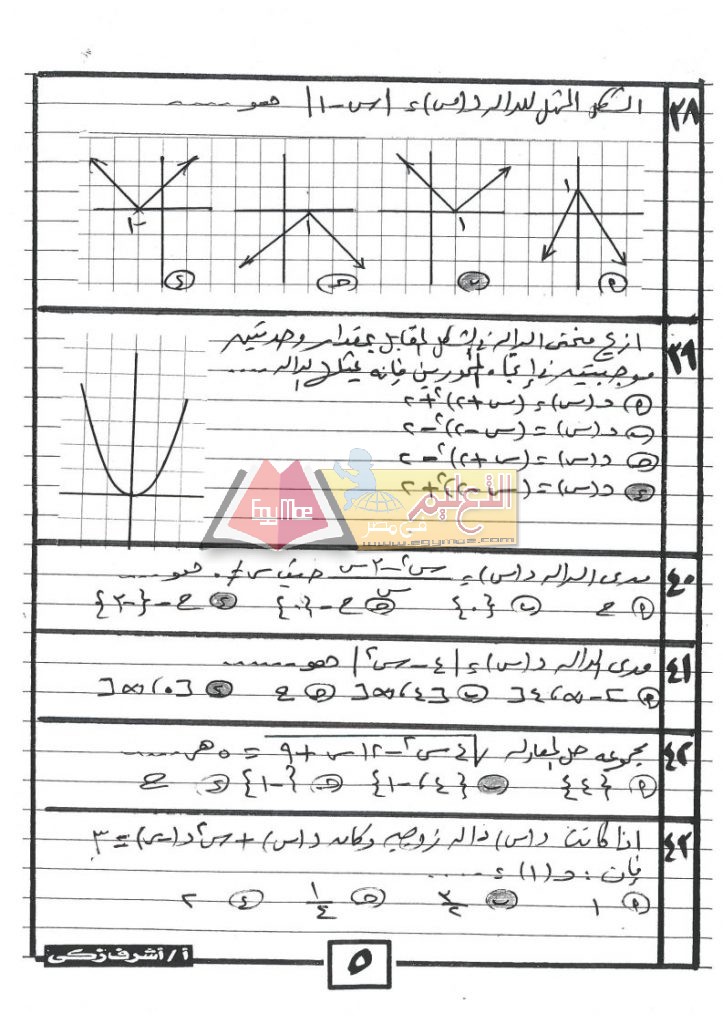 ٣٨ الشكل الممثل للدالة د(س) = |س - ١| هو ......
١-
١
١
١
٤ ب حـ م
٣٩ ازيح منحنى الدالة فى الشكل المقابل بمقدار وحدتين
موجبتين فى إتجاه المحورين فإنه يمثل الدالة ......
م د(س) = (س + ٢)² + ٢
ب د(س) = (س - ٢)² - ٢
حـ د(س) = (س + ٢)² - ٢
٤ د(س) = (س - ٢)² + ٢
EgyMoe
التعليم
فى مصر
www.egymoe.com
٤٠ مدى الدالة د(س) = (س² - ٢س)/س حيث س ≠ ٠ هو ......
م ح ب {٠} حـ ح - {٠} ٤ ح - {-٢}
٤١ مدى الدالة د(س) = |٤ - س²| هو ......
م ]-∞، ٤] ب [٤، ∞[ حـ ح ٤ [٠، ∞[
٤٢ مجموعة حل المعادلة √(٤س² - ١٢س + ٩) = ٥ هى ......
م {٤} ب {٤، -١} حـ {-١} ٤ ح
٤٣ اذا كانت د(س) دالة زوجية وكان د(س) + س² د(-س) = ٣
فإن : د(١) = ......
م ١ ب ٣/٢ حـ ١/٤ ٤ ٢
٥
أ / أشرف زكى